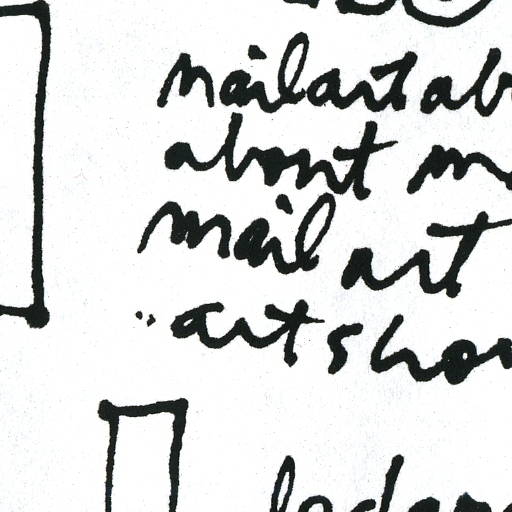 mailart ab
about m
mail art
art show